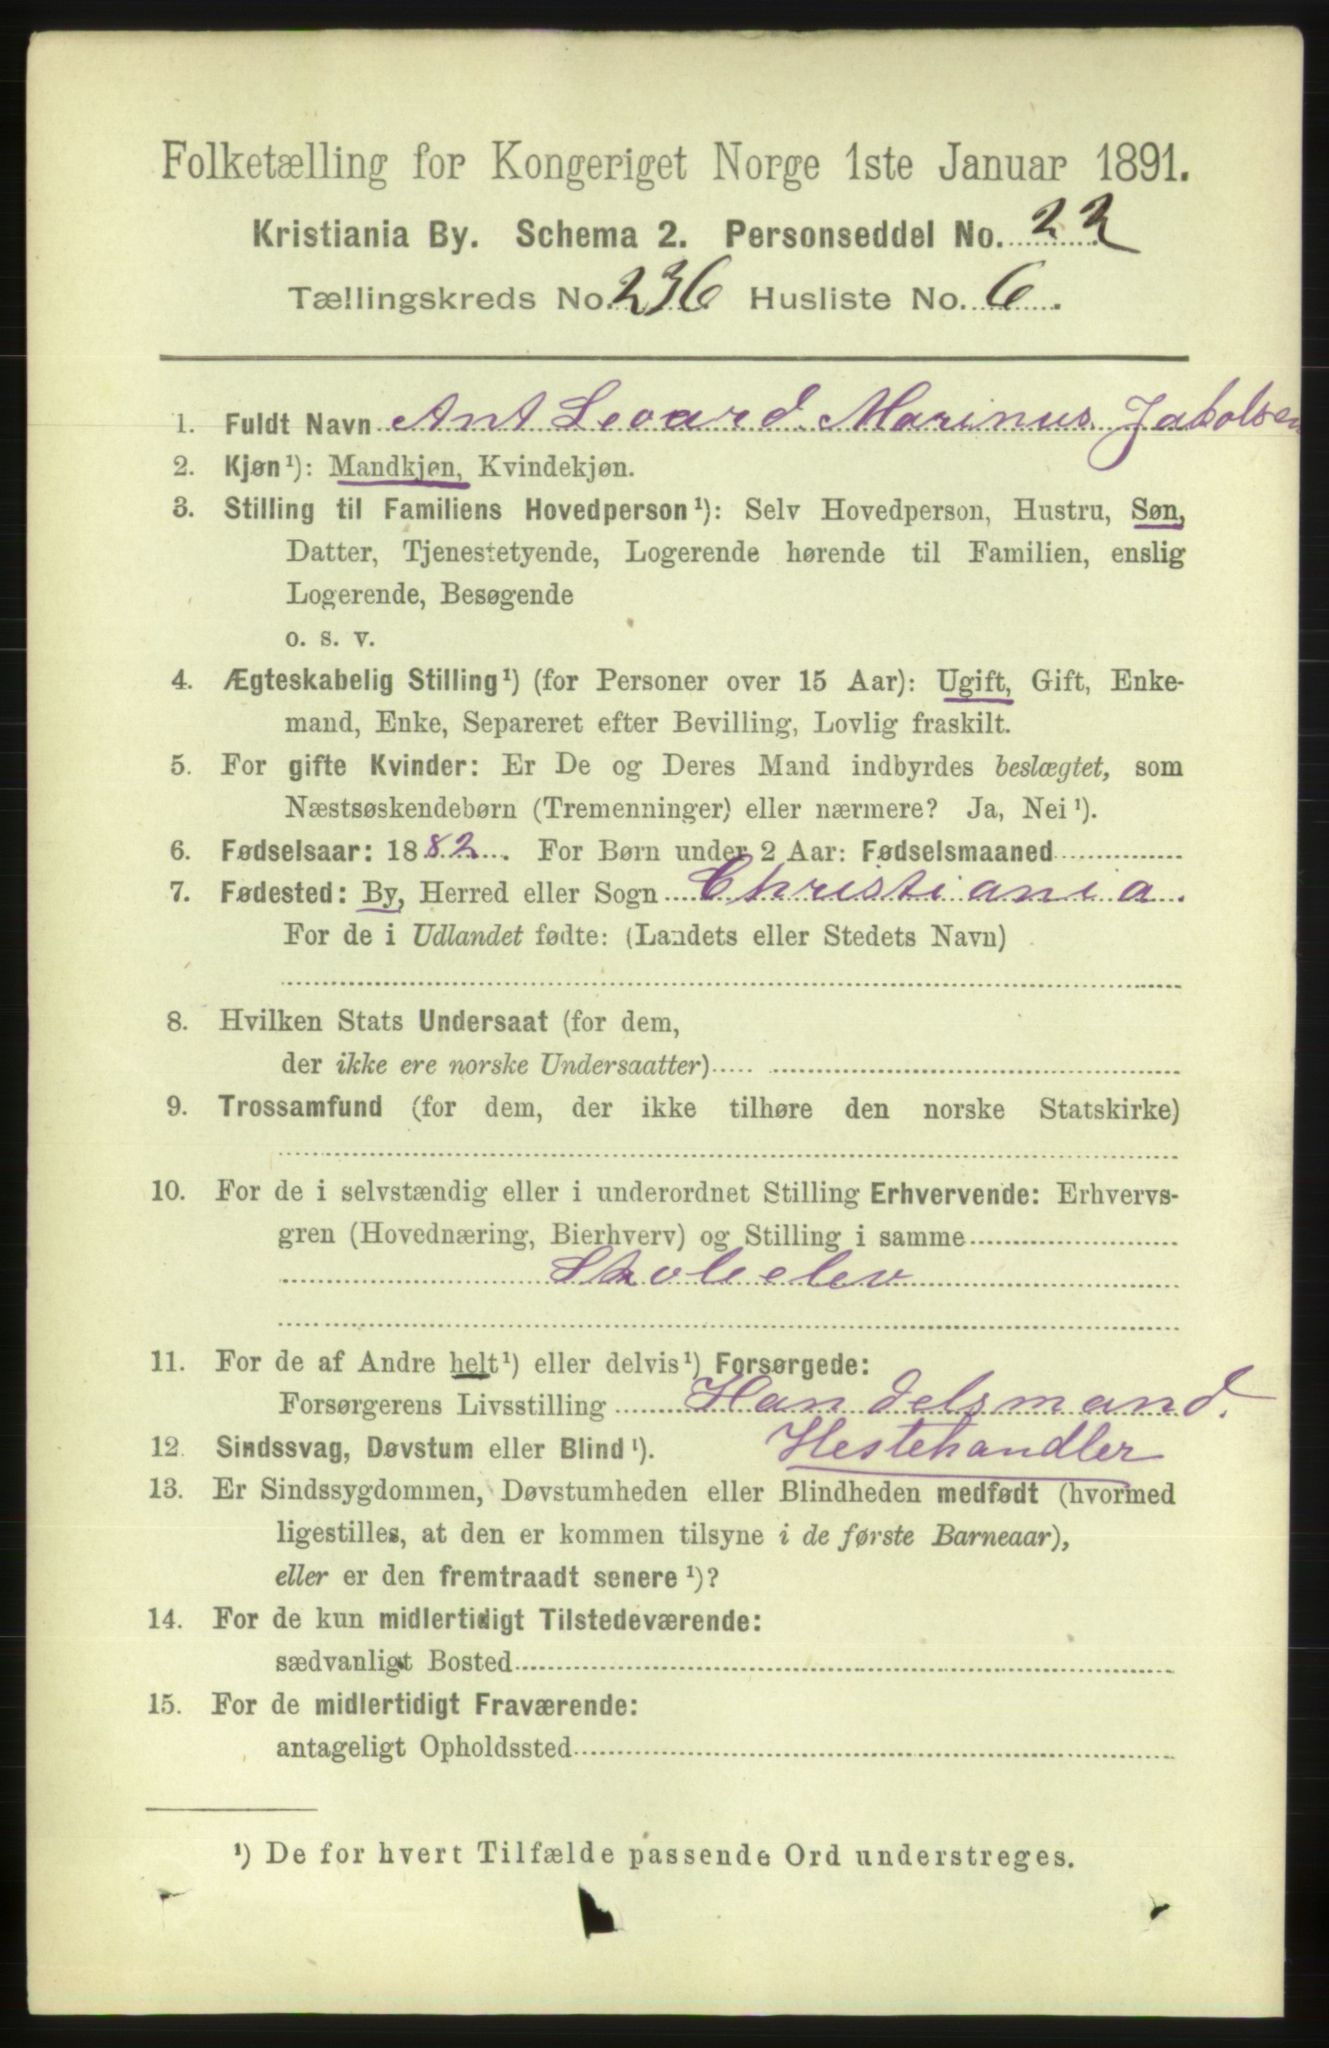 Folketælling for Kongeriget Norge 1ste Januar 1891.
Kristiania By. Schema 2. Personseddel No. 22
Tællingskreds No. 236 Husliste No. 6.
1. Fuldt Navn Ant Leoard Marinus Jakobsen
2. Kjøn¹): Mandkjøn, Kvindekjøn.
3. Stilling til Familiens Hovedperson¹): Selv Hovedperson, Hustru, Søn,
Datter, Tjenestetyende, Logerende hørende til Familien, enslig
Logerende, Besøgende
o. s. v.
4. Ægteskabelig Stilling¹) (for Personer over 15 Aar): Ugift, Gift, Enke-
mand, Enke, Separeret efter Bevilling, Lovlig fraskilt.
5. For gifte Kvinder: Er De og Deres Mand indbyrdes beslægtet, som
Næstsøskendebørn (Tremenninger) eller nærmere? Ja, Nei¹).
6. Fødselsaar: 1882. For Børn under 2 Aar: Fødselsmaaned
7. Fødested: By, Herred eller Sogn Christiania.
For de i Udlandet fødte: (Landets eller Stedets Navn)
8. Hvilken Stats Undersaat (for dem,
der ikke ere norske Undersaatter)
9. Trossamfund (for dem, der ikke tilhøre den norske Statskirke)
10. For de i selvstændig eller i underordnet Stilling Erhvervende: Erhvervs-
gren (Hovednæring, Bierhverv) og Stilling i samme
Skoleelev
11. For de af Andre helt¹) eller delvis¹) Forsørgede:
Forsørgerens Livsstilling Handelsmand.
12. Sindssvag, Døvstum eller Blind¹). Hestehandler
13. Er Sindssygdommen, Døvstumheden eller Blindheden medfødt (hvormed
ligestilles, at den er kommen tilsyne i de første Barneaar),
eller er den fremtraadt senere¹)?
14. For de kun midlertidigt Tilstedeværende:
sædvanligt Bosted
15. For de midlertidigt Fraværende:
antageligt Opholdssted
¹) De for hvert Tilfælde passende Ord understreges.